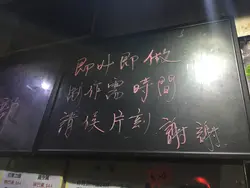 即叫即做
制作需時間
請候片刻 謝謝